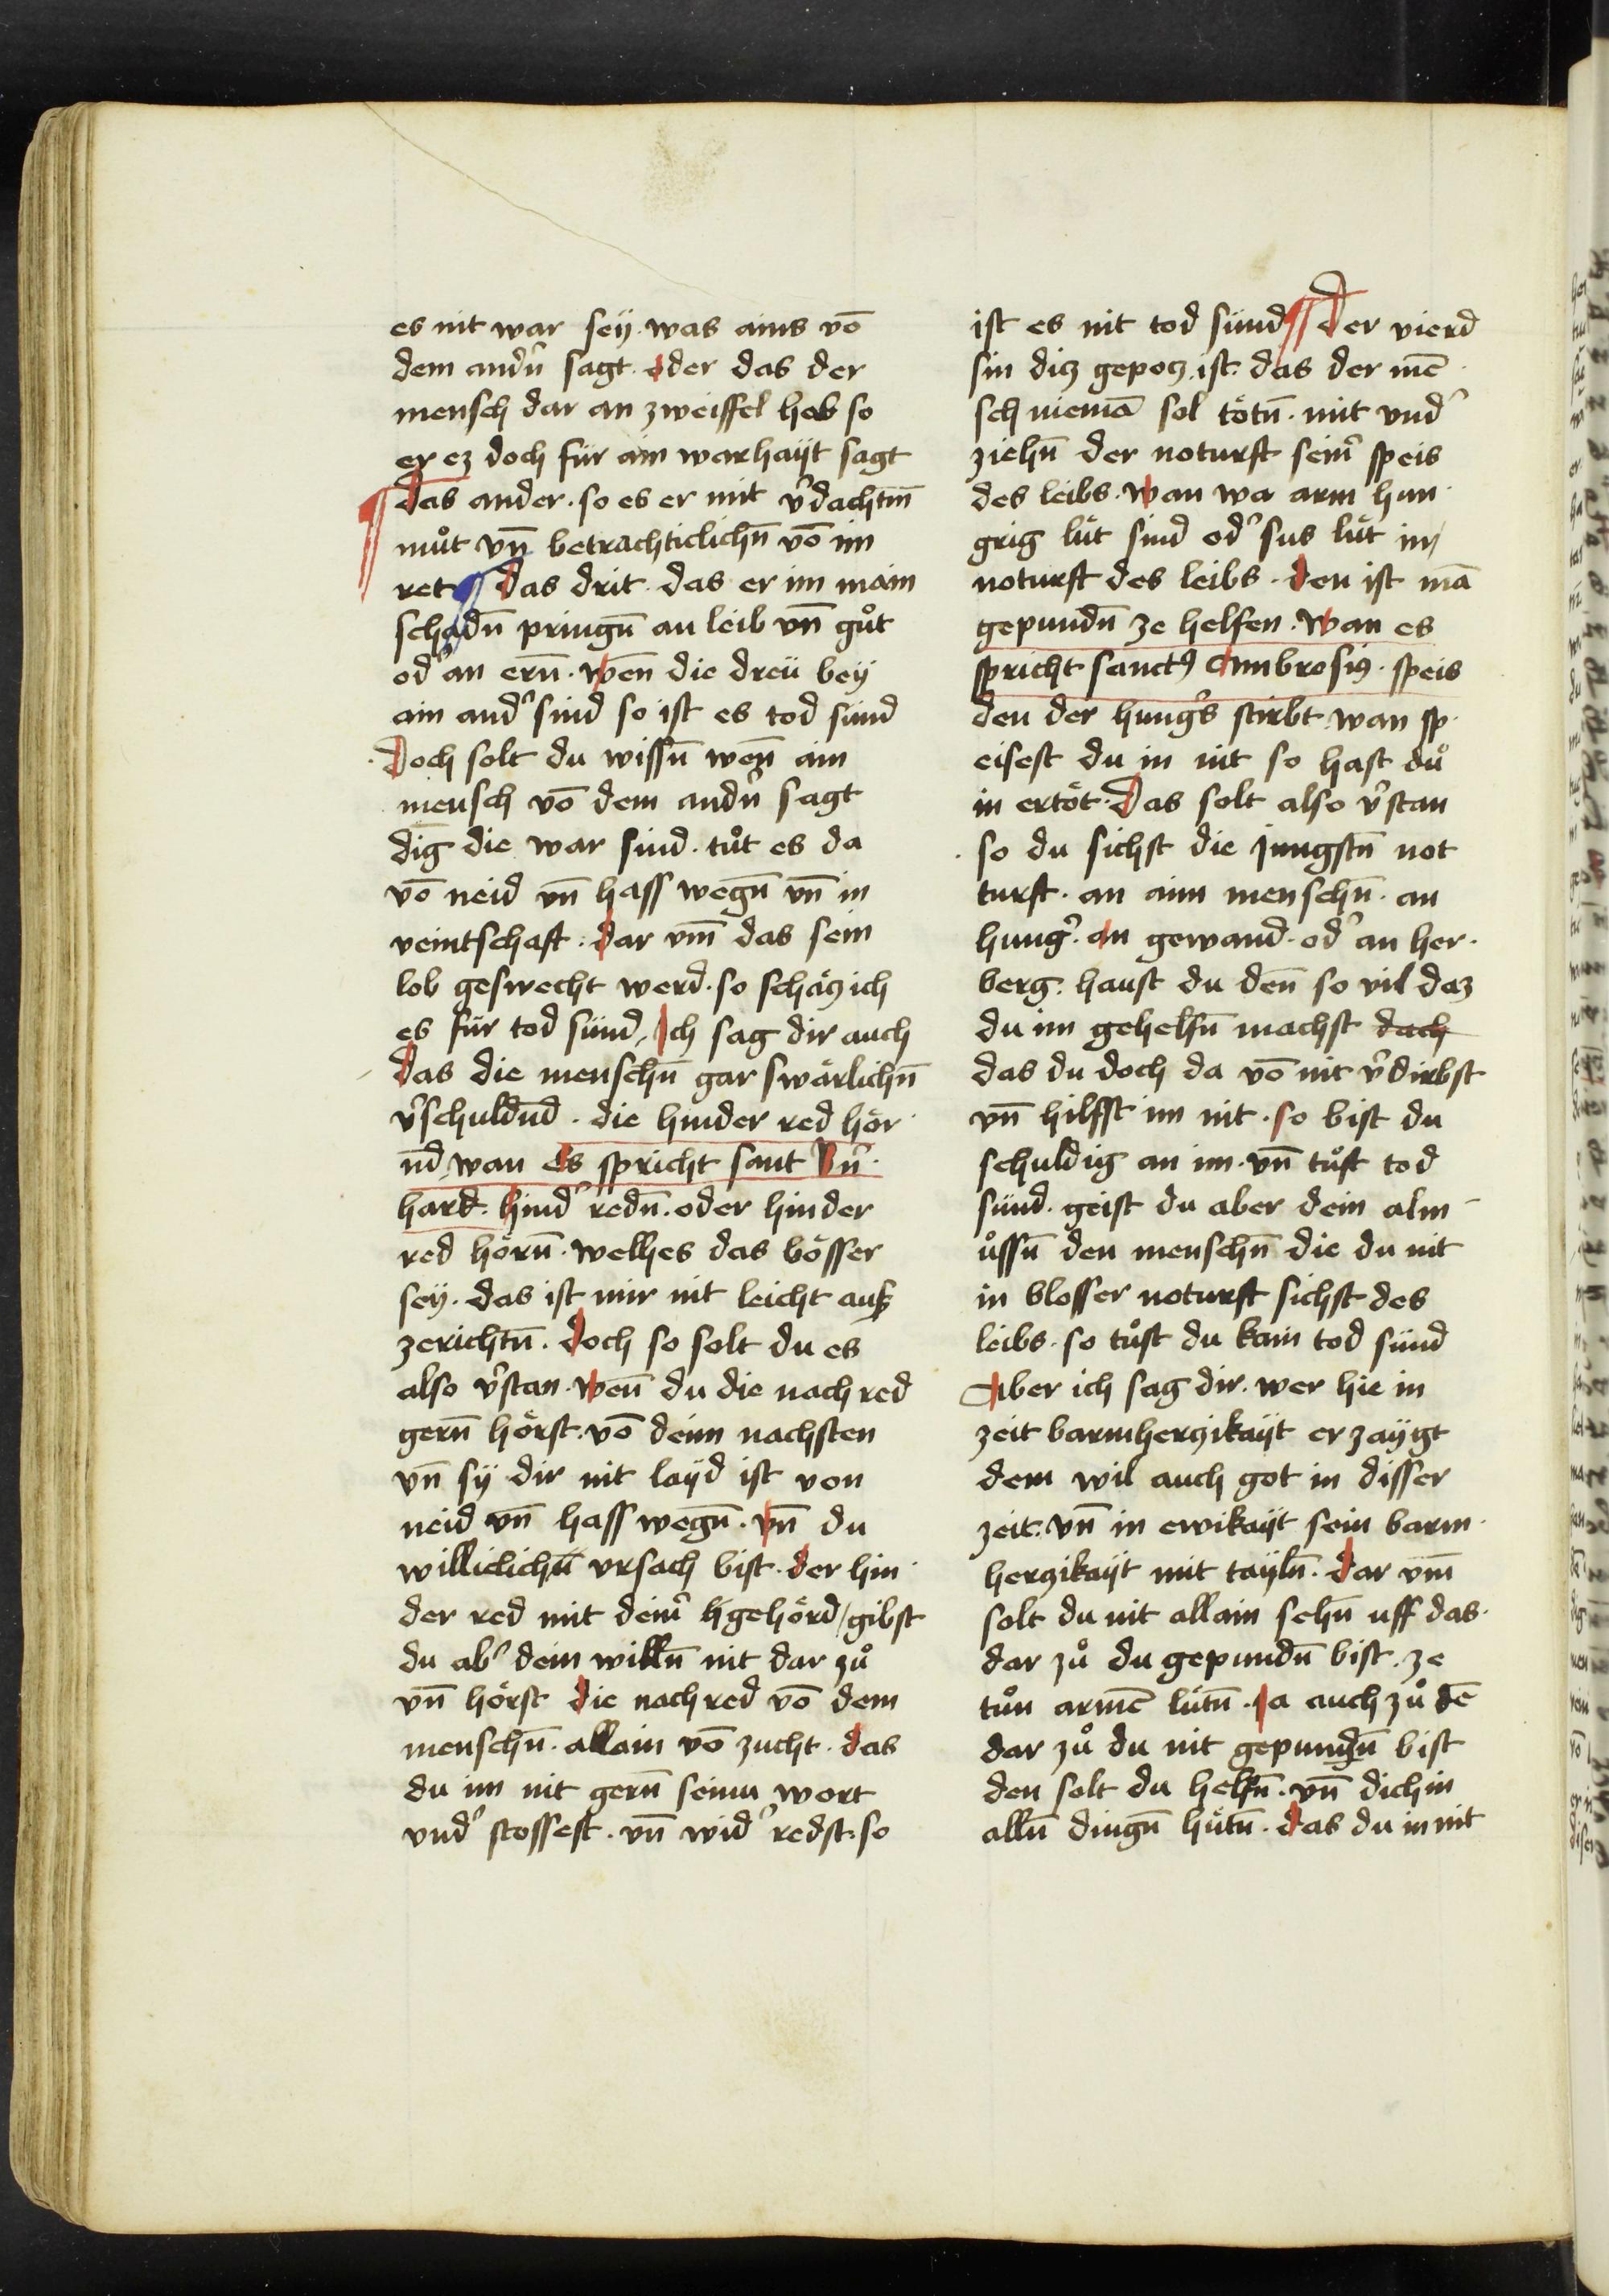 es nit war seÿ. was ains vō
dem andn̄ sagt. oder das der
mensch dar an zweiffel hab so
er ez doch für ain warhaÿt sagt
¶ Das ander. so es er mit v̉dachtm̄
mu̇t vn̄ betrachticlichn̄ vō im
ret ¶ Das drit. das er im main
schadn̄ pringn̄ an leib vn̄ gu̇t
od̉ an ern̄. wen̄ die dreü beÿ
ain and̉ sind so ist es tod sünd
Doch solt du wissn̄ wen̄ ain
mensch vō dem andn̄ sagt
dīg die war sind. tu̇t es da
vō neid vn̄ hass wegn̄ vn̄ in
veintschaft. dar vm̄ das sein
lob geswecht werd. so schäcz ich
es für tod sünd, Ich sag dir auch
das die menschn̄ gar swärlichn̄
v̉schuldn̄d. die hinder red hör
n̄d, wan Es spricht sant Bn̉
hard. hind̉ redn̄. oder hinder
red hörn̄. welhes das bösser
seÿ. das ist mir nit leicht ausz
zerichtn̄. doch so solt du es
also v̉stan. wen̄ du die nach red
gern̄ hörst. vō deim nachsten
vn̄ sÿ dir nit laÿd ist von
neid vn̄ hass wegn̄. vn̄ du
williclichn̄ vrsach bist. der hin
der red mit deim̉ h gehörd / gibst
du ab̉ dein willn̄ nit dar zu̇
vn̄ hörst die nach red vō dem
menschn̄. allain vō zucht. das
du im nit gern̄ seinu wort
vnd̉ stossest. vn̄ wid̉ redst. so
ist es nit tod sünd ¶ Der vierd
sin dicz gepocz ist. das der mē
sch niemā sol tötn̄. mit vnd̉
ziehn̄ der noturft sein̉ speis
des leibs. wan wa arm hun
grig lüt sind od̉ sus lüt in
noturft des leibs. den ist mā
gepundn̄ ze helfen. wan es
spricht sanctꝰ Ambrosiꝰ. speis
den der hung̉s stirbt. wan sp
eisest du in nit so hast du̇
in ertöt. Das solt also v̉stan
so du sichst die jungstn̄ not
turft. an aim menschn̄. an
hung̉. an gewand. od̉ an her
berg. haust du den̄ so vil daz
du im gehelfn̄ machst dach
das du doch da vō nit v̉dirbst
vn̄ hilfst im nit. so bist du
schuldig an im. vn̄ tu̇st tod
sünd. geist du aber dein alm
u̇ssn̄ den menschn̄ die du nit
in blosser noturft sichst des
leibs. so tu̇st du kain tod sünd
Aber ich sag dir. wer hie in
zeit barmherczikaÿt er zaÿgt
dem wil auch got in disser
zeit. vn̄ in ewikaÿt sein barm
herczikaÿt mit taÿln̄. dar vm̄
solt du nit allain sehn̄ uff das
dar zu̇ du gepundn̄ bist. ze
tu̇n armē lütn̄. Ja auch zu̇ dē
dar zu̇ du nit gepundn̄ bist
den solt du helfn̄. vn̄ dich in
alln̄ dingn̄ hütn̄. das du in nit